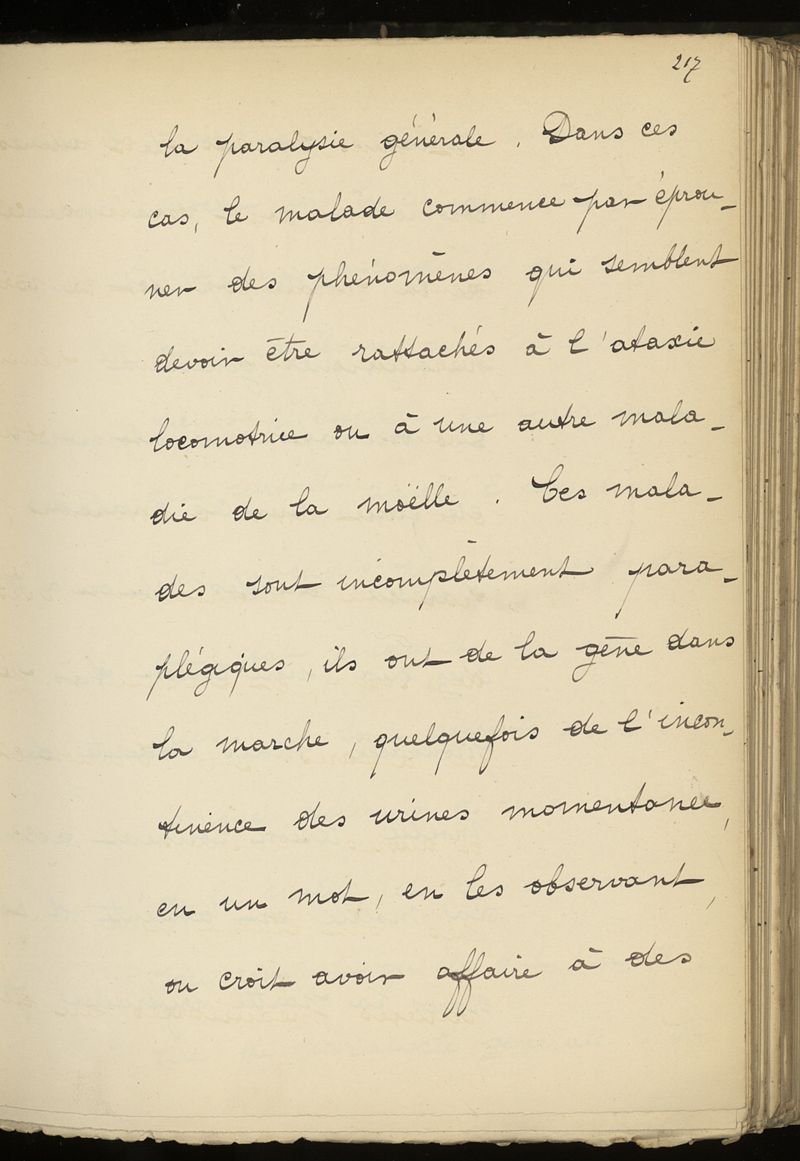 217
la paralysie générale. Dans ces
cas, le malade commence par éprou-
ver des phénomènes qui semblent
devoir être rattachés à l'ataxie
locomotrice ou à une autre mala-
die de la moëlle. Ces mala-
des sont incomplètement para-
plégiques, ils ont de la gêne dans
la marche, quelquefois de l'incon-
tinence des urines momentanée,
en un mot, en les observant,
on croit avoir affaire à des